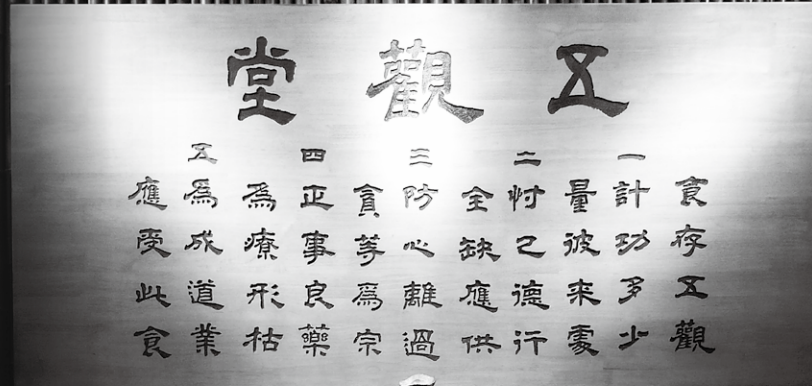 五觀堂
食存五觀
一計功多少
量彼來處
二忖己德行
全缺應供
三防心離過
貪等為宗
四正事良藥
為療形枯
五為成道業
應受此食